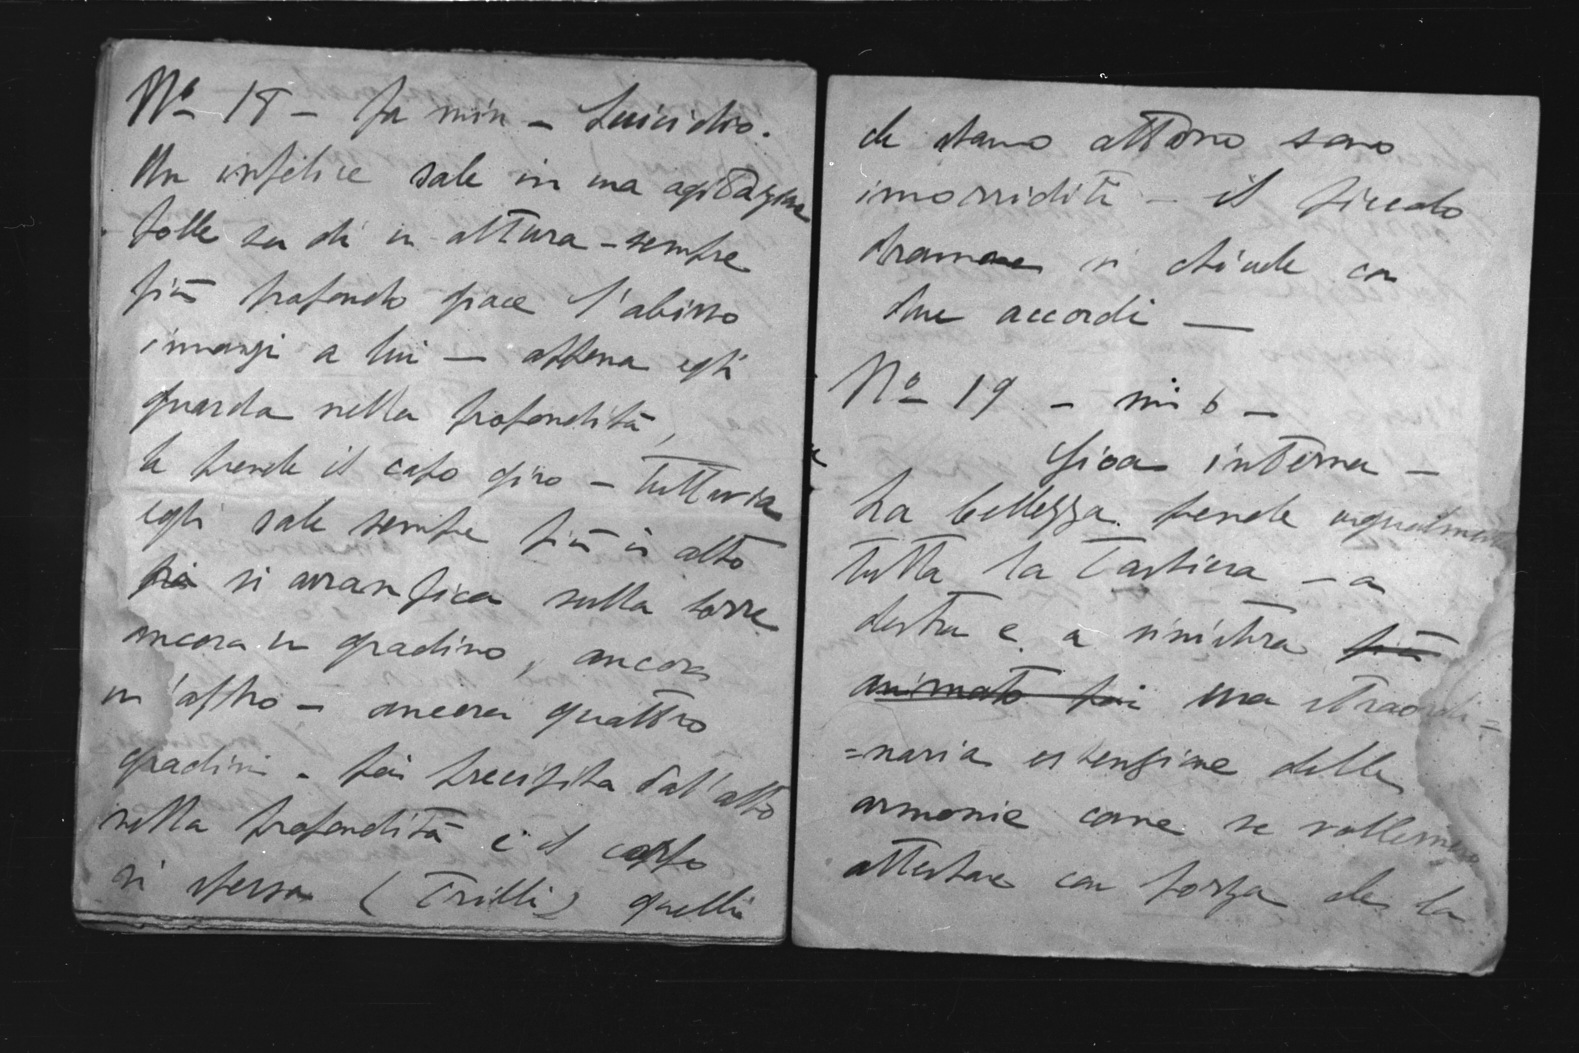 No 18 – fa min – Suicidio.
Un infelice sale in una agitazione
folle su di un altura – sempre
più profondo giace l'abisso
innanzi a lui – appena egli
guarda nella profondità,
le prende il capo giro – tuttavia
egli sale sempre più in alto
poi si arrampica sulla torre
ancora un gradino, ancora
un'altro – ancora quattro
gradini – poi precipita dall'alto
nella profondità e il corpo
si spezza (Trilli) quelli
che stano attorno sono
inorriditi – il piccolo
drama si chiude con
due accordi —
No 19 – mi b –
Gioa interna –
La bellezza prende ugualmente
tutta la tastiera – a
destra e a sinistra più
animato poi una straordi=
=naria estensione delle
armonie come se volessero
attestare con forza che la